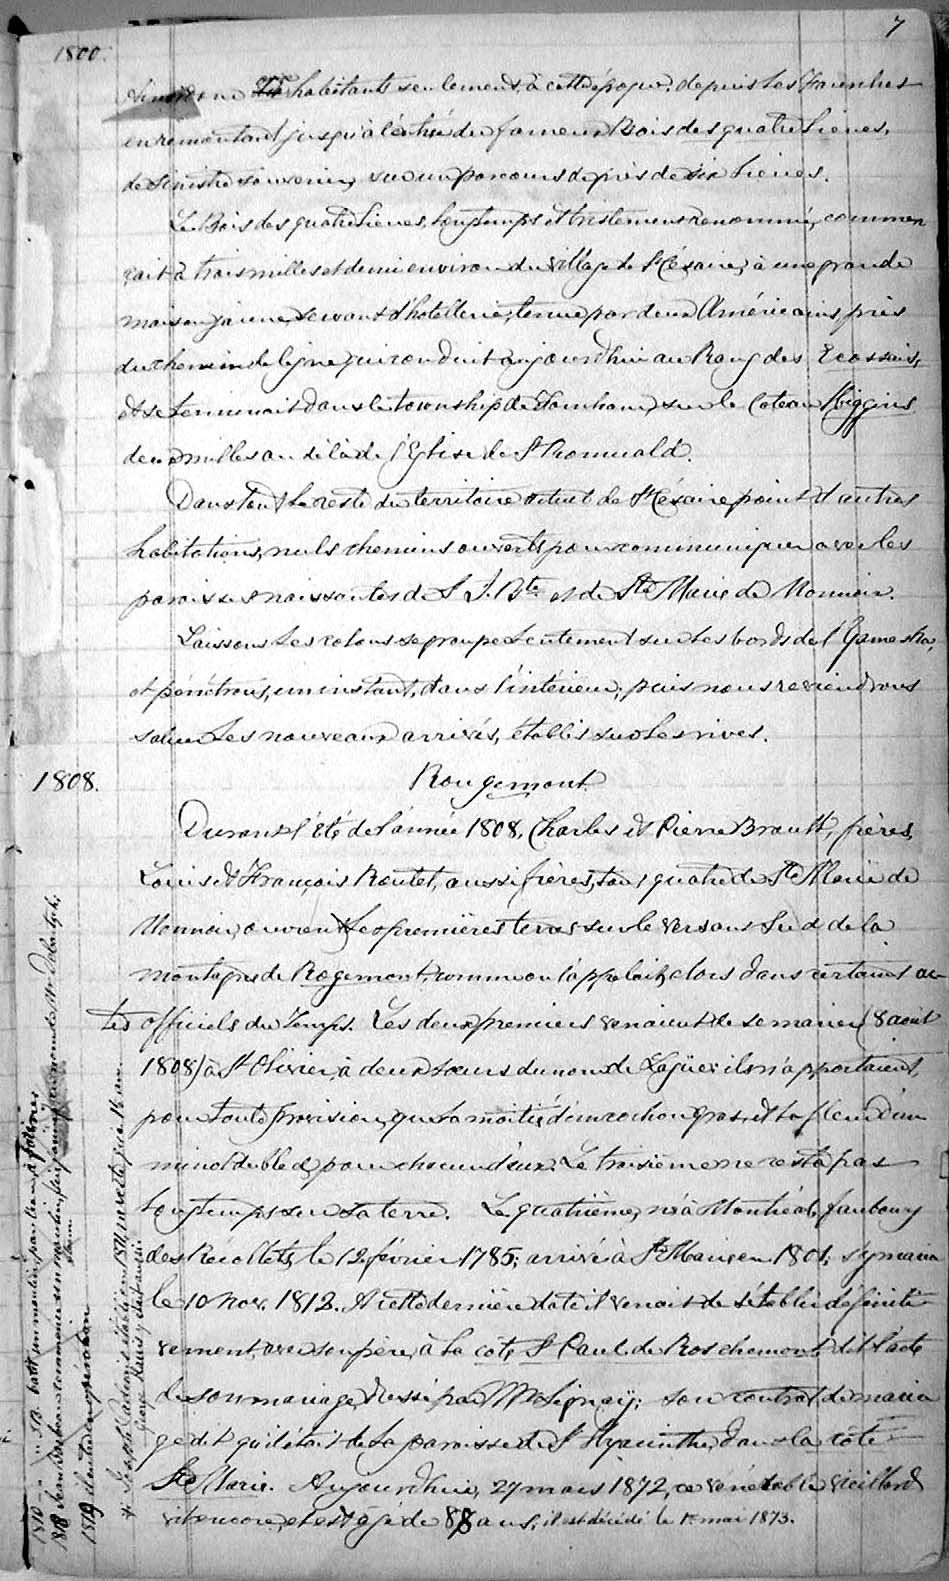 7
1800.
habitants seulement, à cette époque, depuis les Fourches
en remontant jusqu'à l'entrée du fameux Bois des quatre Lieues,
de sinistre souvenir, sur un parcours de près de six lieues.
Le Bois des quatre Lieues, longtemps et tristement renommé, commen
çait à trois milles et demi environ du village de St Césaire, à une grande
maison jaune, servant d'hotellerie, tenue par deux Américains, près
du chemin de ligne qui conduit aujourd'hui au Rang des Ecossais,
et se terminait dans le township de Farnham, sur le Coteau Higgins
deux milles au delà de l'Eglise de St Romuald.
Dans tout le reste du territoire actuel de St Césaire, point d'autres
habitations, nuls chemins ouverts pour communiquer avec les
paroisses naissantes de S. J. Bte et de Ste Marie de Monnoir.
Laissons les colons se grouper lentement sur les bords de l'Yamaska,
et pénétrons, un instant, dans l'intérieur, puis nous reviendrons
saluer les nouveaux arrivés, établis sur les rives.
1808. Rougemont
Durant l'été de l'année 1808, Charles et Pierre Brault, frères,
Louis et François Routet, aussi frères, tous quatre de Ste Marie de
Monnoir, ouvrent les premières terres sur le versant Sud de la
montagne de Rogemont, comme on l'appelait alors dans certains ac-
tes officiels du temps. Les deux premiers venaient de se marier (8 août
1808) à St Olivier, à deux soeurs du nom de Lagüe: ils n'apportaient,
pour toute provision, que la moitié d'un cochon gras, et la fleur d'un
minot de bled, pour chacun d'eux. Le troisième ne resta pas
longtemps sur sa terre. Le quatrième, né à Montréal, faubourg
des Récollets, le 12 février 1785, arrivé à Ste Marie en 1801, s'y maria
le 10 Nov. 1812. A cette dernière date il venait de s'établir définiti-
vement, avec son père, à la côte St Paul de Roschemont, dit l'acte
de son mariage dressé par Mr Signaÿ; son contrat de maria
ge dit qu'il était de la paroisse de St Hyacinthe, dans la côte
Ste Marie. Aujourd'hui, 27 mars 1872, ce vénérable vieillard
vit encore, et est âgé de 88 ans, il est décédé le 1er mai 1873.
1810 J.B. batit un moulin
1819 il entre en opération